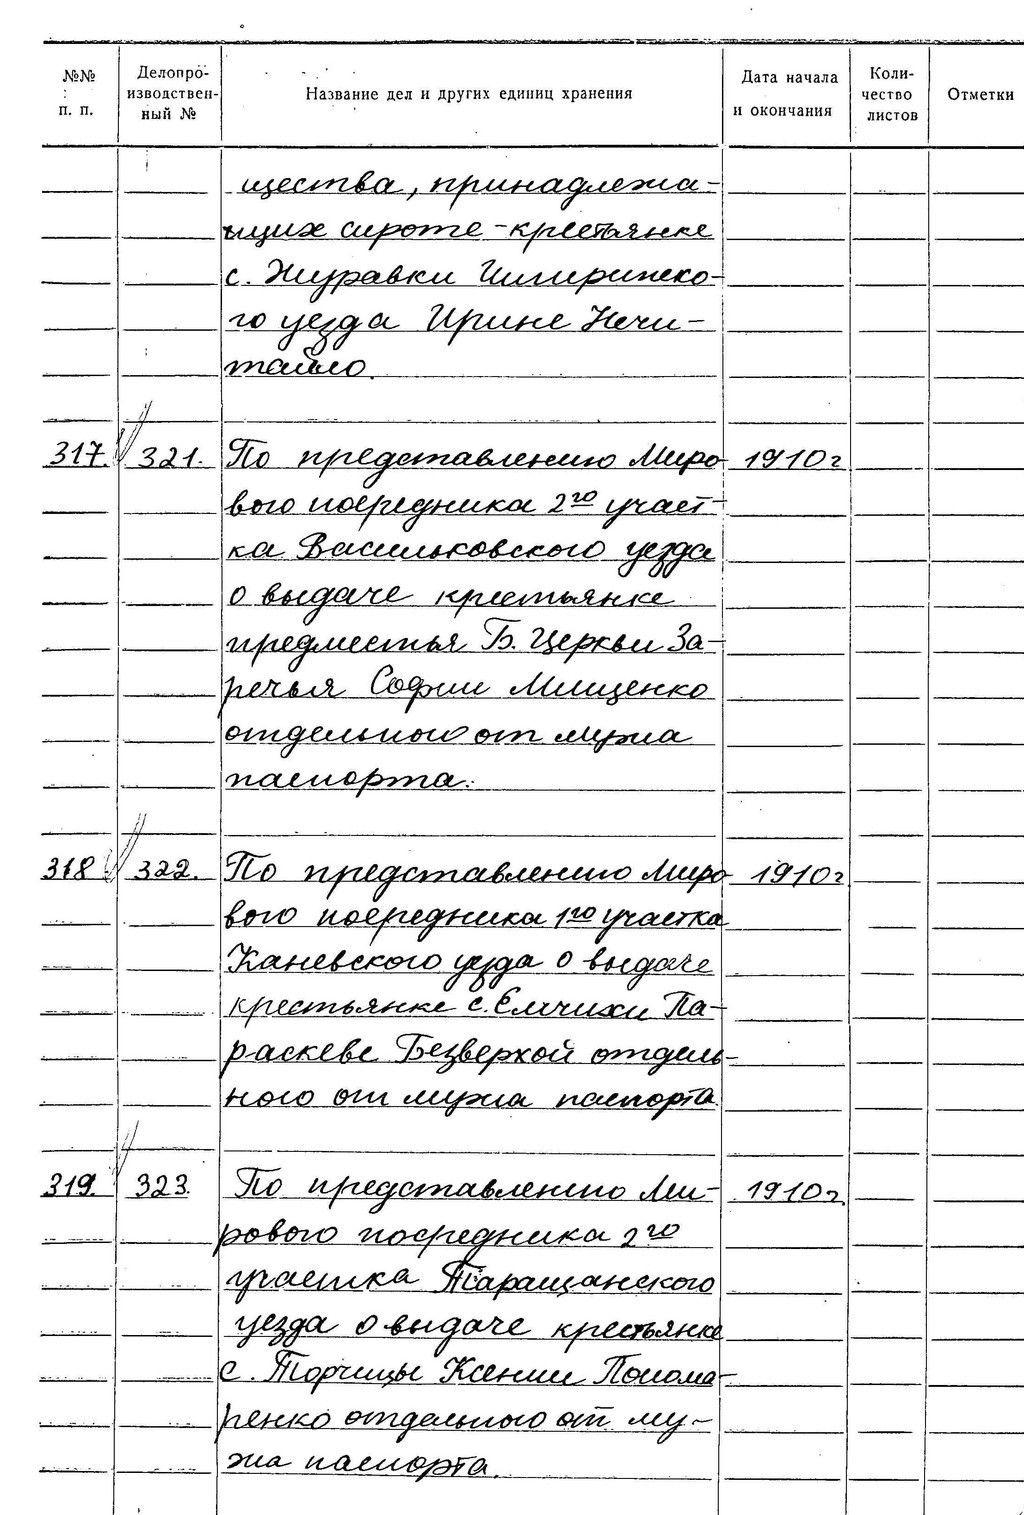 №№ п. п. Делопро- изводствен- ный № Название дел и других единиц хранения Дата начала и окончания Коли- чество листов Отметки
щества, принадлежа-
щих сироте-крестьянке
с. Журавки Чигиринско-
го уезда Ирине Нечи-
тайло.
317. 321. По представлению Миро- 1910 г
вого посредника 2го участ-
ка Васильковского уезда
о выдаче крестьянке
предместья Б. Церкви За-
речья Софии Мищенко
отдельного от мужа
паспорта.
318 322. По представлению Миро- 1910 г
вого посредника 1го участка
Каневского уезда о выдаче
крестьянке с. Емчихи Па-
раскеве Безверхой отдель-
ного от мужа паспорта.
319. 323. По представлению Ми- 1910 г.
рового посредника 2го
участка Таращанского
уезда о выдаче крестьянке
с. Торчицы Ксении Понома-
ренко отдельного от му-
жа паспорта.